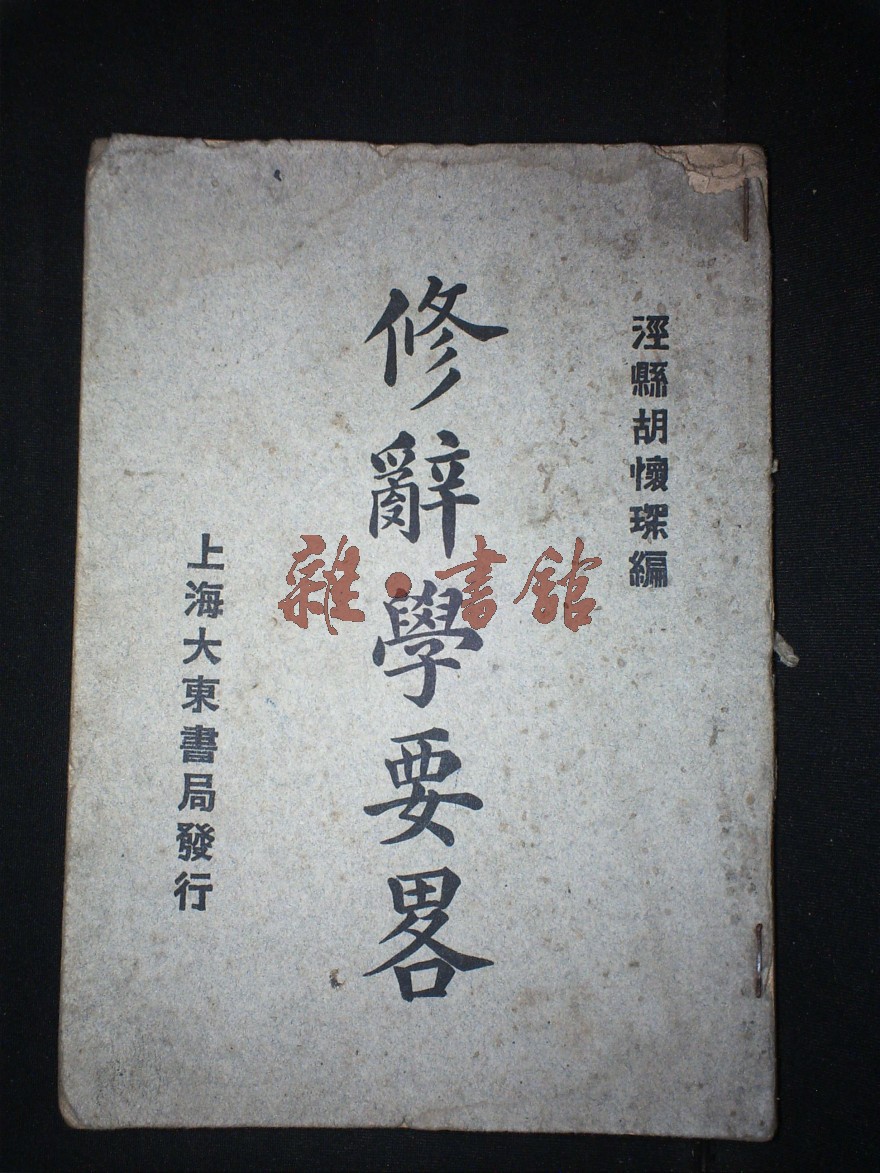 涇縣胡懷琛編
修辭學要畧
上海大東書局發行
雜·書館